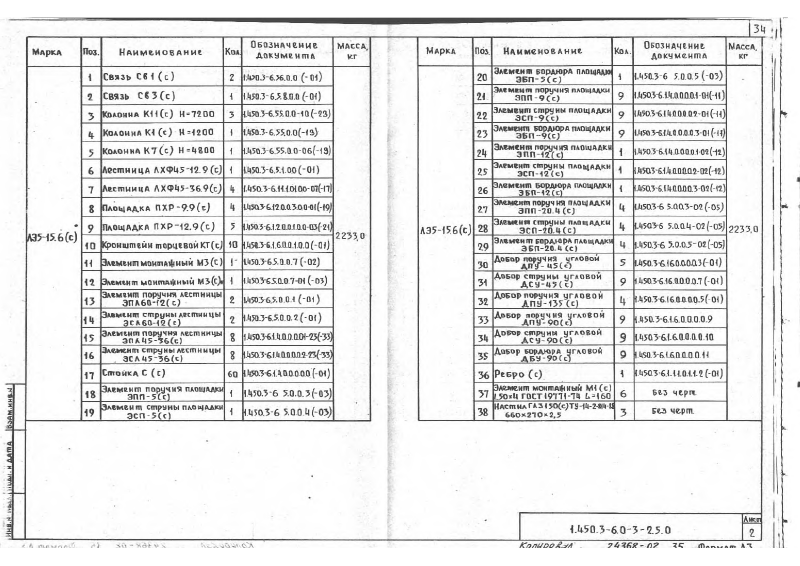 34
Марка Поз. Наименование Кол. Обозначение документа Масса, кг
ЛЭ5-15.6(с) 2233,0
1 Связь СВ1 (с) 2 1.450.3-6.5.6.0.0 (-01)
2 Связь СВ3 (с) 1 1.450.3-6.5.8.0.0 (-01)
3 Колонна К11 (с) Н=7200 3 1.450.3-6.5.5.0.0-10 (-23)
4 Колонна К1 (с) Н=1200 1 1.450.3-6.5.5.0.0 (-13)
5 Колонна К7 (с) Н=4800 1 1.450.3-6.5.5.0.0-06 (-19)
6 Лестница ЛХФ45-12.9 (с) 1 1.450.3-6.5.1.0.0 (-01)
7 Лестница ЛХФ45-36.9 (с) 4 1.450.3-6.1.1.0.1.0.0-07(-17)
8 Площадка ПХР-9.9 (с) 4
9 Площадка ПХР-12.9 (с) 5
10 Кронштейн торцевой КТ (с) 10 1.450.3-6.1.6.0.1.0.0 (-01)
11 Элемент монтажный М3 (с) 1 1.450.3-6.5.0.0.7 (-02)
12 Элемент монтажный М3 (с)н 1 1.450.3-6.5.0.0.7-01 (-03)
13 Элемент поручня лестницы ЭПЛ60-12 (с) 2 1.450.3-6.5.0.0.1 (-01)
14 Элемент струны лестницы ЭСЛ60-12 (с) 2 1.450.3-6.5.0.0.2 (-01)
15 Элемент поручня лестницы ЭПЛ45-36 (с) 8 1.450.3-6.1.4.0.0.0.1-23(-33)
16 Элемент струны лестницы ЭСЛ45-36 (с) 8 1.450.3-6.1.4.0.0.0.2-23(-33)
17 Стойка С (с) 60 1.450.3-6.1.4.0.0.0.0 (-01)
18 Элемент поручня площадки ЭПП-5 (с) 1 1.450.3-6 5.0.0.3 (-03)
19 Элемент струны площадки ЭСП-5 (с) 1 1.450.3-6 5.0.0.4 (-03)
Марка Поз. Наименование Кол. Обозначение документа Масса, кг
ЛЭ5-15.6(с) 2233,0
20 Элемент бордюра площадки ЭБП-5 (с) 1 1.450.3-6 5.0.0.5 (-03)
21 Элемент поручня площадки ЭПП-9 (с) 9 1.450.3-6.1.4.0.0.0.1-01(-11)
22 Элемент струны площадки ЭСП-9 (с) 9 1.450.3-6.1.4.0.0.0.2-01 (-11)
23 Элемент бордюра площадки ЭБП-9 (с) 9 1.450.3-6.1.4.0.0.0.3-01 (-11)
24 Элемент поручня площадки ЭПП-12 (с) 1 1.450.3-6.1.4.0.0.0.1-02 (-12)
25 Элемент струны площадки ЭСП-12 (с) 1 1.450.3-6.1.4.0.0.0.2-02(-12)
26 Элемент бордюра площадки ЭБП-12 (с) 1 1.450.3-6.1.4.0.0.0.3-02(-12)
27 Элемент поручня площадки ЭПП-20.4 (с) 4 1.450.3-6 5.0.0.3-02 (-05)
28 Элемент струны площадки ЭСП-20.4 (с) 4 1.450.3-6 5.0.0.4-02 (-05)
29 Элемент бордюра площадки ЭБП-20.4 (с) 4 1.450.3-6 5.0.0.5-02 (-05)
30 Добор поручня угловой ДПУ-45 (с) 5 1.450.3-6.1.6.0.0.0.3 (-01)
31 Добор струны угловой ДСУ-45 (с) 9 1.450.3-6.1.6.0.0.0.7 (-01)
32 Добор поручня угловой ДПУ-135 (с) 4 1.450.3-6.1.6.0.0.0.5 (-01)
33 Добор поручня угловой ДПУ-90 (с) 9 1.450.3-6.1.6.0.0.0.9
34 Добор струны угловой ДСУ-90 (с) 9 1.450.3-6.1.6.0.0.0.10
35 Добор бордюра угловой ДБУ-90 (с) 9 1.450.3-6.1.6.0.0.0.11
36 Ребро (с) 1 1.450.3-6.1.1.1.0.1.1.2 (-01)
37 Элемент монтажный М1 (с) L50х4 ГОСТ 19771-74 L=160 6 Без черт.
38 660×270×2,5 3 Без черт.
1.450.3-6.0-3-25.0
Лист
2
Копировал 24368-02 35 Формат А3